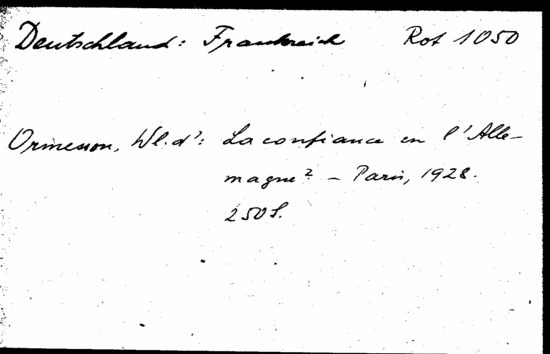 Deutschland: Frankreich Rot 1050
Ormesson, Wl. d': La confiance en l'Alle-
magne? - Paris, 1928.
250 S.